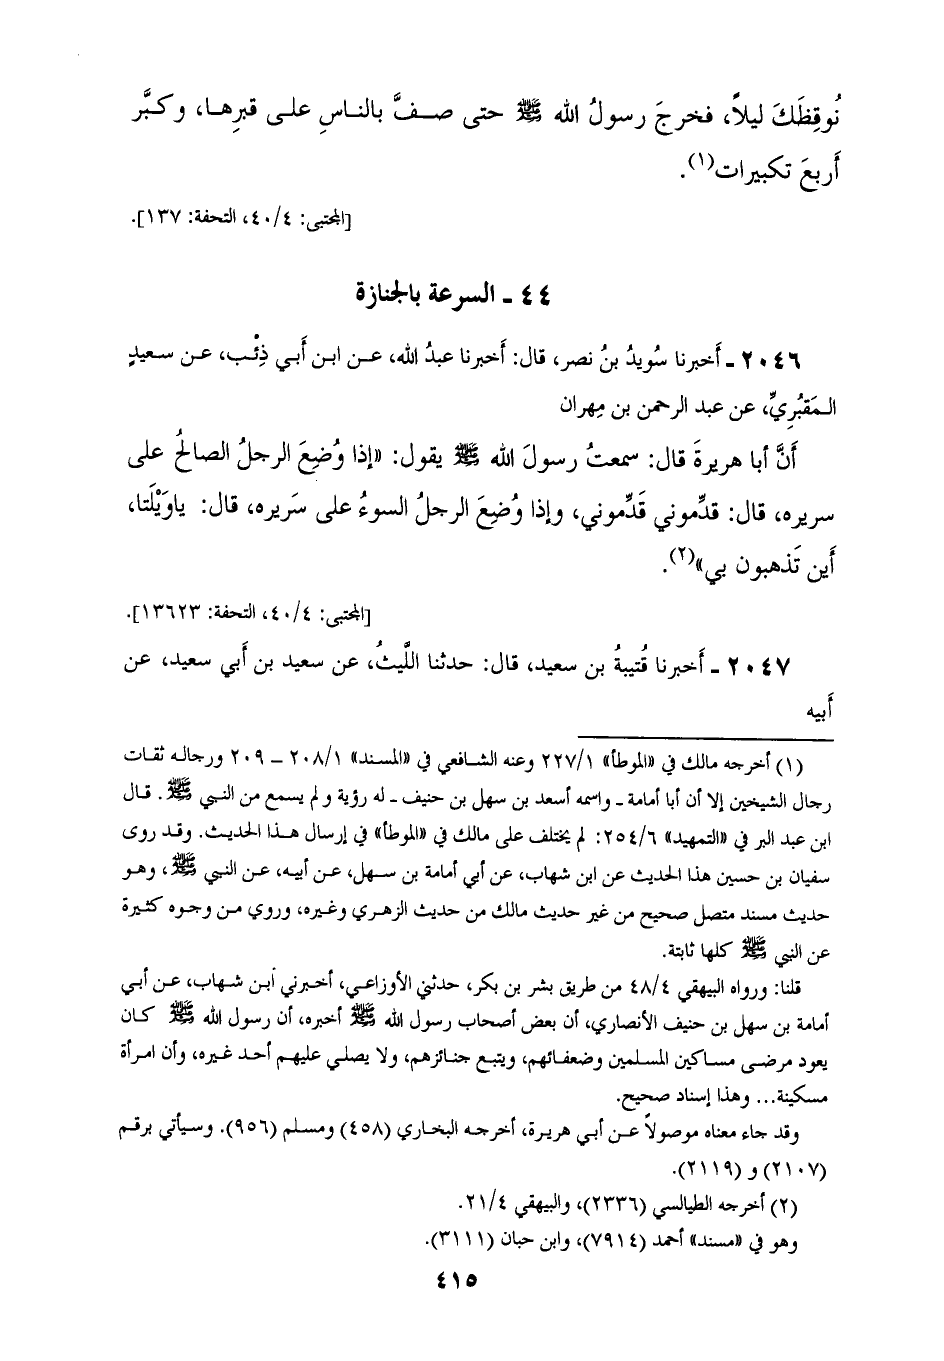 نُوقِظَكَ ليلاً، فخرجَ رسولُ الله ﷺ حتى صفَّ بالناسِ على قبرِها، وكبَّر
أَربعَ تكبيرات(١).
[المجتبى: ٤٠/٤، التحفة: ١٣٧].
٤٤ - السرعة بالجنازة
٢٠٤٦ - أَخبرنا سُويدُ بنُ نصر، قال: أَخبرنا عبدُ الله، عن ابن أَبي ذِئْب، عن سعيدٍ
المَقبُريِّ، عن عبد الرحمن بن مِهران
أَنَّ أبا هريرةَ قال: سمعتُ رسولَ الله ﷺ يقول: «إذا وُضِعَ الرجلُ الصالحُ على
سريره، قال: قدِّموني قَدِّموني، وإذا وُضِعَ الرجلُ السوءُ على سَريره، قال: ياوَيْلَتا،
أَين تَذهبون بي»(٢).
[المجتبى: ٤٠/٤، التحفة: ١٣٦٢٣].
٢٠٤٧ - أَخبرنا قُتيبةُ بن سعيد، قال: حدثنا اللَّيثُ، عن سعيد بن أَبي سعيد، عن
أَبيه
(١) أخرجه مالك في «الموطأ» ٢٢٧/١ وعنه الشافعي في «المسند» ٢٠٨/١ - ٢٠٩ ورجاله ثقات
رجال الشيخين إلا أن أبا أمامة - واسمه أسعد بن سهل بن حنيف - له رؤية ولم يسمع من النبي ﷺ. قال
ابن عبد البر في «التمهيد» ٢٥٤/٦: لم يختلف على مالك في «الموطأ» في إرسال هذا الحديث. وقد روى
سفيان بن حسين هذا الحديث عن ابن شهاب، عن أبي أمامة بن سهل، عن أبيه، عن النبي ﷺ، وهو
حديث مسند متصل صحيح من غير حديث مالك من حديث الزهري وغيره، وروي من وجوه كثيرة
عن النبي ﷺ كلها ثابتة.
قلنا: ورواه البيهقي ٤٨/٤ من طريق بشر بن بكر، حدثني الأوزاعي، أخبرني ابن شهاب، عن أبي
أمامة بن سهل بن حنيف الأنصاري، أن بعض أصحاب رسول الله ﷺ أخبره، أن رسول الله ﷺ كان
يعود مرضى مساكين المسلمين وضعفائهم، ويتبع جنائزهم، ولا يصلي عليهم أحد غيره، وأن امرأة
مسكينة... وهذا إسناد صحيح.
وقد جاء معناه موصولاً عن أبي هريرة، أخرجه البخاري (٤٥٨) ومسلم (٩٥٦). وسيأتي برقم
(٢١٠٧) و (٢١١٩).
(٢) أخرجه الطيالسي (٢٣٣٦)، والبيهقي ٢١/٤.
وهو في «مسند» أحمد (٧٩١٤)، وابن حبان (٣١١١).
٤١٥